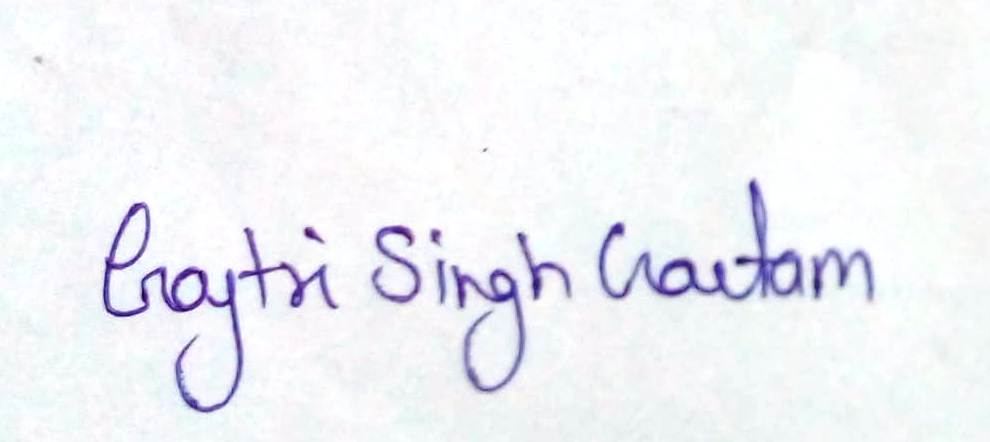 Gaytri Singh Gautam